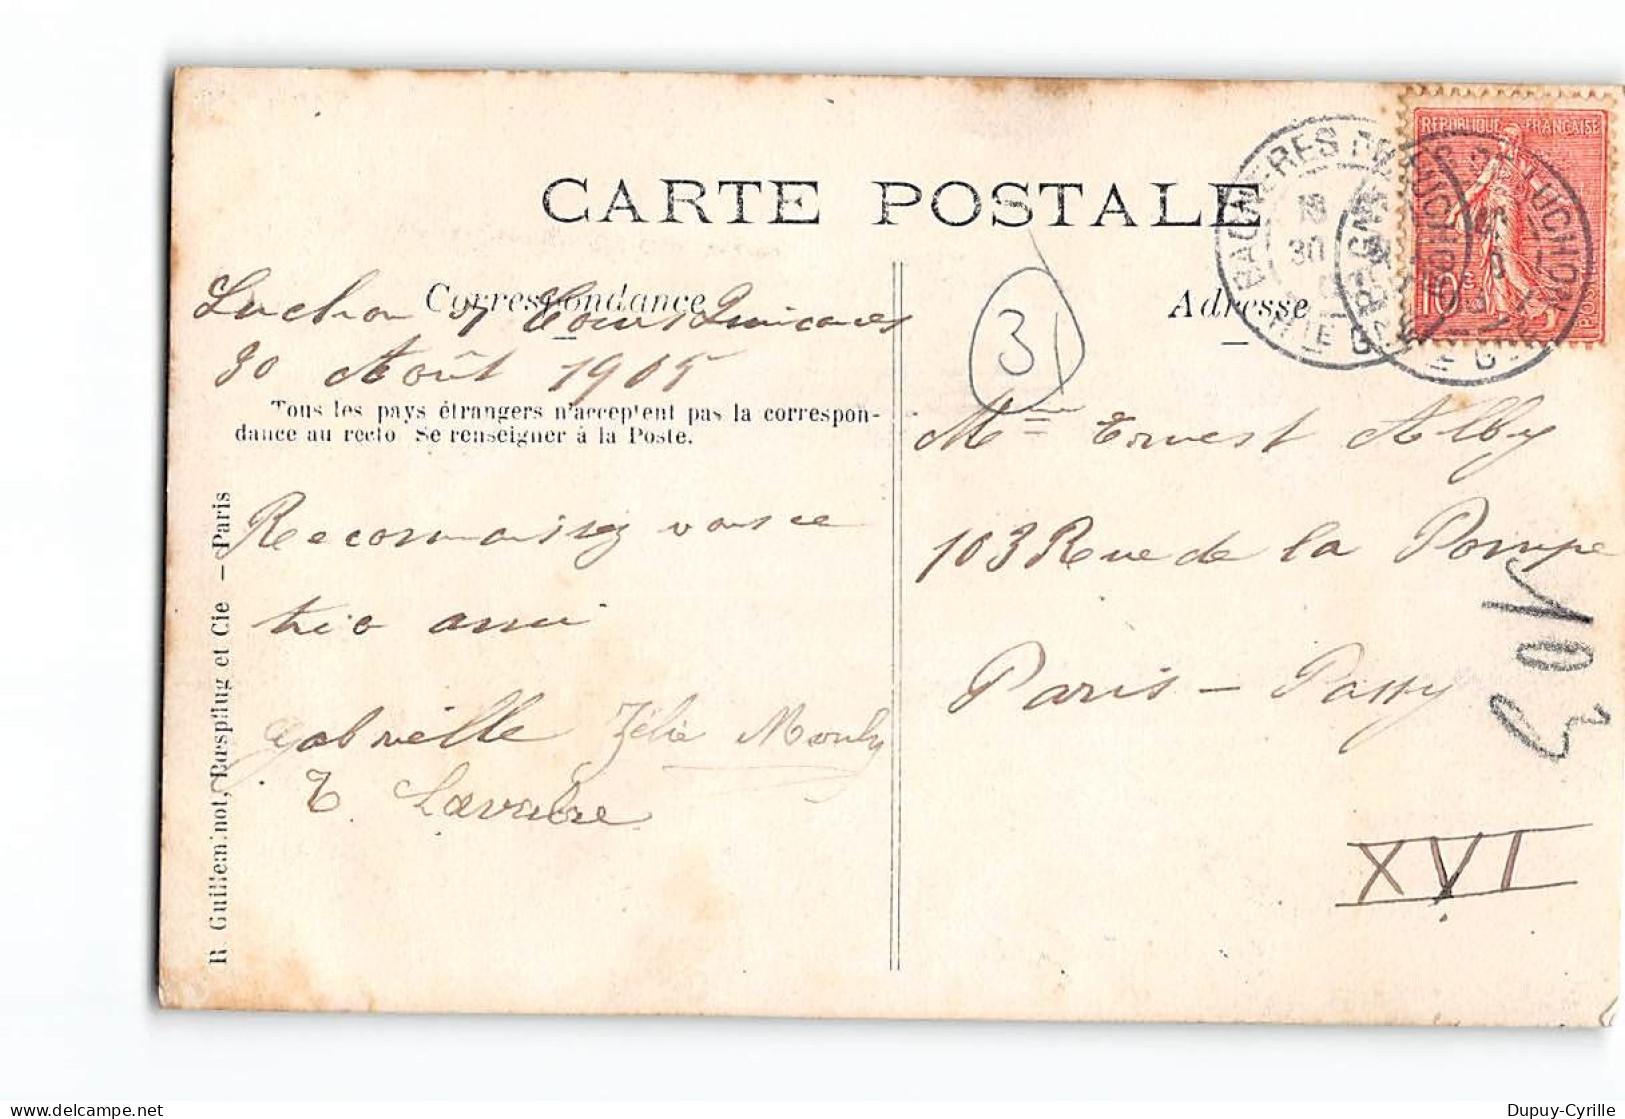 CARTE POSTALE
RÉPUBLIQUE FRANÇAISE
10c
POSTES
BAGNÈRES DE LUCHON
HTE G
30
Correspondance
Adresse
Luchon 7 Cours Quinconces
30 Août 1905
31
Tous les pays étrangers n'acceptent pas la correspon-
dance au recto Se renseigner à la Poste.
Reconnaissez vous ce
trio ami
Gabrielle Zélie Mouly
E.
Mme Ernest Alby
103 Rue de la Pompe
Paris - Passy
103
XVI
R. Guilleminot, Bœspflug et Cie - Paris
Dupuy-Cyrille